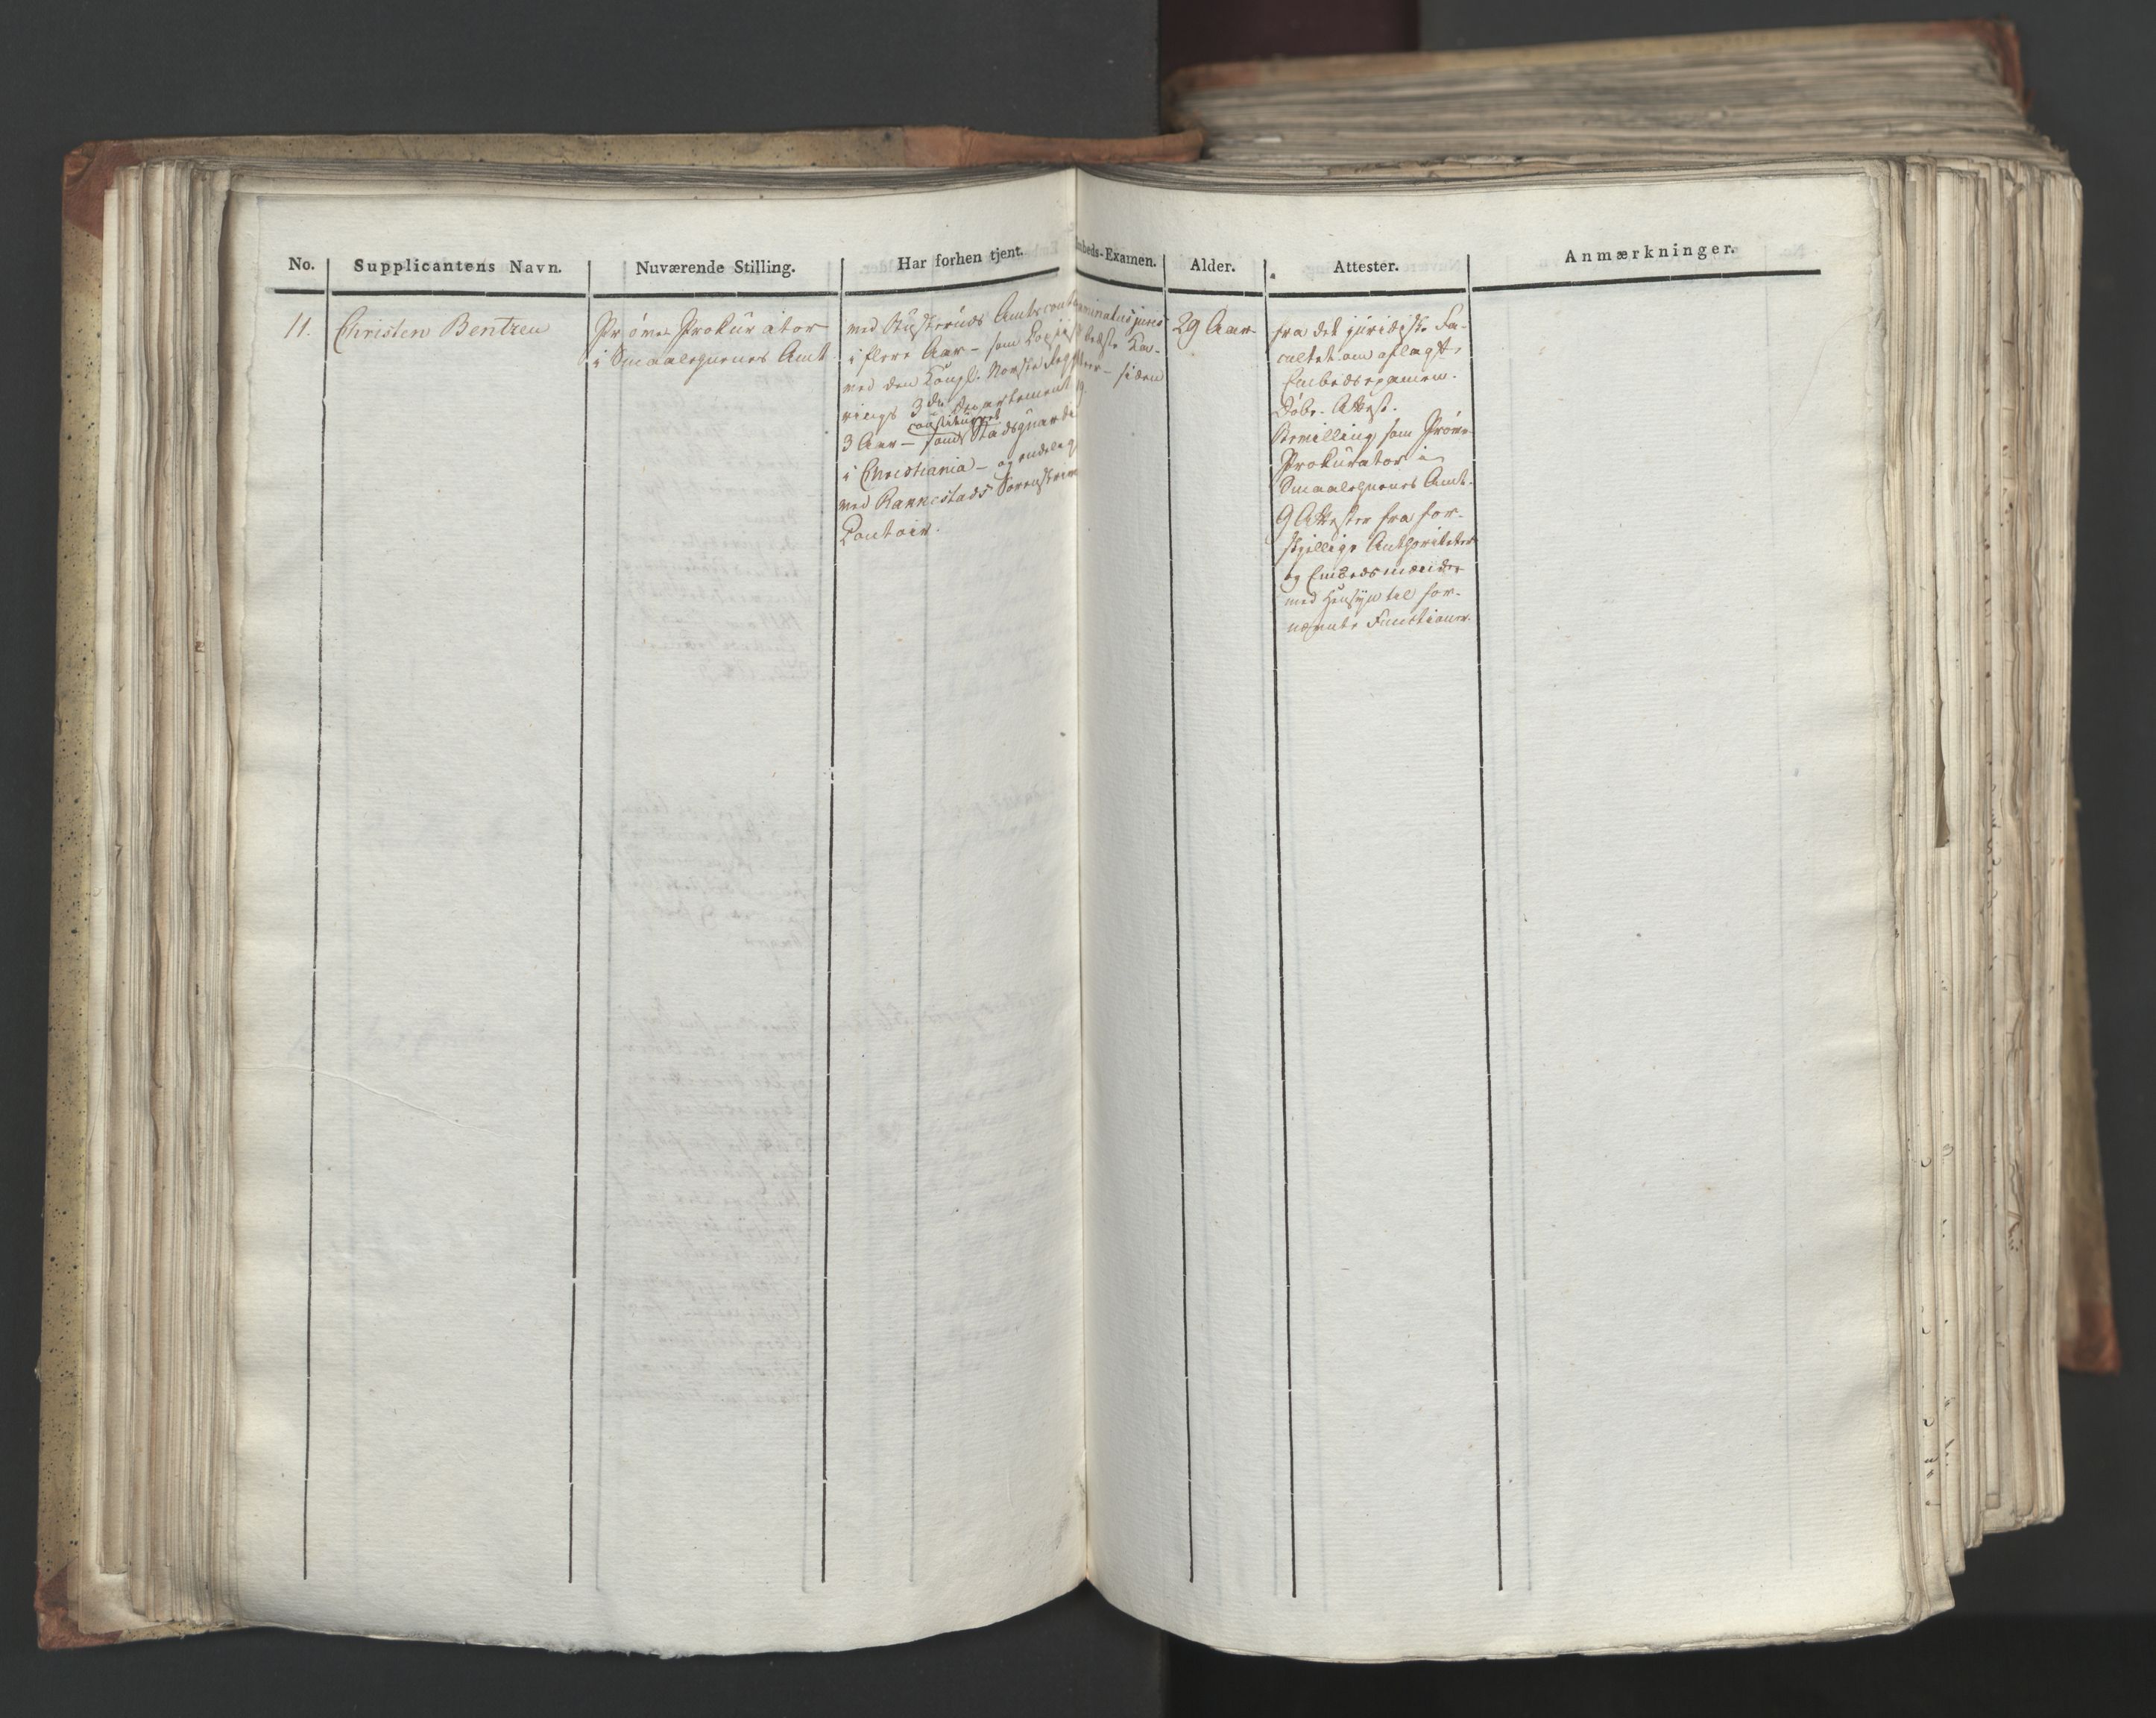 No.
Supplicantens Navn.
Nuværende Stilling.
Har forhen tjent.
beds-Examen.
Alder.
Attester.
Anmærkninger.
11.
Christen Bentzen
Prøve-Prokurator
i Smaalenenes Amt
med Buskeruds Amts
i flere Aar – som Copiist
ved den Kongl. Norske Reg
rings 3die Departement
constitueret
3 Aar – som Stadsguarde
i Christiania – og endelig
ved Rakkestads Sorenskrive
Contoir.
aminatus juris
bedste Ka-
siden
29 Aar
fra det juridiske Fa-
cultet om aflagt
Embedsexamen.
Døbe-Attest.
Bevilling som Prøve-
Prokurator i
Smaalenenes Amt.
9 Attester fra for-
skjellige Authoriteter
og Embedsmænd
med Hensyn til for-
nævnte Functioner.